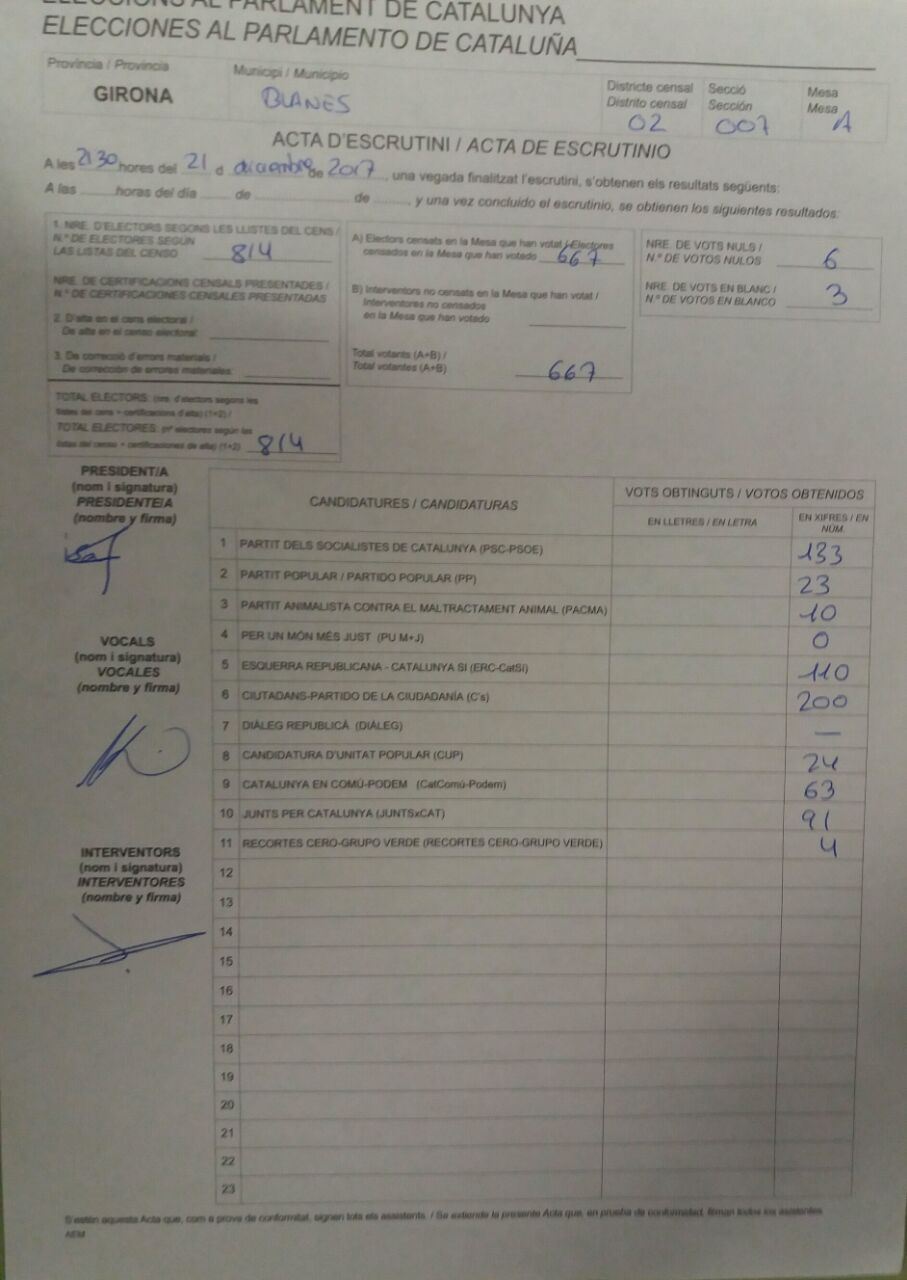 ELECCIONS AL PARLAMENT DE CATALUNYA
ELECCIONES AL PARLAMENTO DE CATALUÑA
Província / Provincia
GIRONA
Municipi / Municipio
BLANES
Districte censal
Distrito censal
02
Secció
Sección
007
Mesa
Mesa
A
ACTA D'ESCRUTINI / ACTA DE ESCRUTINIO
A les 2130 hores del 21 d diciembre de 2017, una vegada finalitzat l'escrutini, s'obtenen els resultats següents:
A las ........ horas del día ........ de ........ de ........, y una vez concluido el escrutinio, se obtienen los siguientes resultados:
1. NRE. D'ELECTORS SEGONS LES LLISTES DEL CENS /
N.º DE ELECTORES SEGÚN
LAS LISTAS DEL CENSO 814
NRE. DE CERTIFICACIONS CENSALS PRESENTADES /
N.º DE CERTIFICACIONES CENSALES PRESENTADAS
2. D'alta en el cens electoral /
De alta en el censo electoral:
3. De correcció d'errors materials /
De corrección de errores materiales:
TOTAL ELECTORS: (nre. d'electors segons les
llistes del cens + certificacions d'alta) (1+2) /
TOTAL ELECTORES: (nº electores según las
listas del censo + certificaciones de alta) (1+2) 814
A) Electors censats en la Mesa que han votat / Electores
censados en la Mesa que han votado 667
B) Interventors no censats en la Mesa que han votat /
Interventores no censados
en la Mesa que han votado
Total votants (A+B) /
Total votantes (A+B) 667
NRE. DE VOTS NULS /
N.º DE VOTOS NULOS 6
NRE. DE VOTS EN BLANC /
N.º DE VOTOS EN BLANCO 3
PRESIDENT/A
(nom i signatura)
PRESIDENTE/A
(nombre y firma)
VOCALS
(nom i signatura)
VOCALES
(nombre y firma)
INTERVENTORS
(nom i signatura)
INTERVENTORES
(nombre y firma)
CANDIDATURES / CANDIDATURAS
VOTS OBTINGUTS / VOTOS OBTENIDOS
EN LLETRES / EN LETRA
EN XIFRES / EN
NÚM.
1 PARTIT DELS SOCIALISTES DE CATALUNYA (PSC-PSOE) 133
2 PARTIT POPULAR / PARTIDO POPULAR (PP) 23
3 PARTIT ANIMALISTA CONTRA EL MALTRACTAMENT ANIMAL (PACMA) 10
4 PER UN MÓN MÉS JUST (PU M+J) 0
5 ESQUERRA REPUBLICANA - CATALUNYA SÍ (ERC-CatSí) 110
6 CIUTADANS-PARTIDO DE LA CIUDADANÍA (C's) 200
7 DIÀLEG REPUBLICÀ (DIÀLEG) —
8 CANDIDATURA D'UNITAT POPULAR (CUP) 24
9 CATALUNYA EN COMÚ-PODEM (CatComú-Podem) 63
10 JUNTS PER CATALUNYA (JUNTSxCAT) 91
11 RECORTES CERO-GRUPO VERDE (RECORTES CERO-GRUPO VERDE) 4
12
13
14
15
16
17
18
19
20
21
22
23
S'estén aquesta Acta que, com a prova de conformitat, signen tots els assistents. / Se extiende la presente Acta que, en prueba de conformidad, firman todos los asistentes.